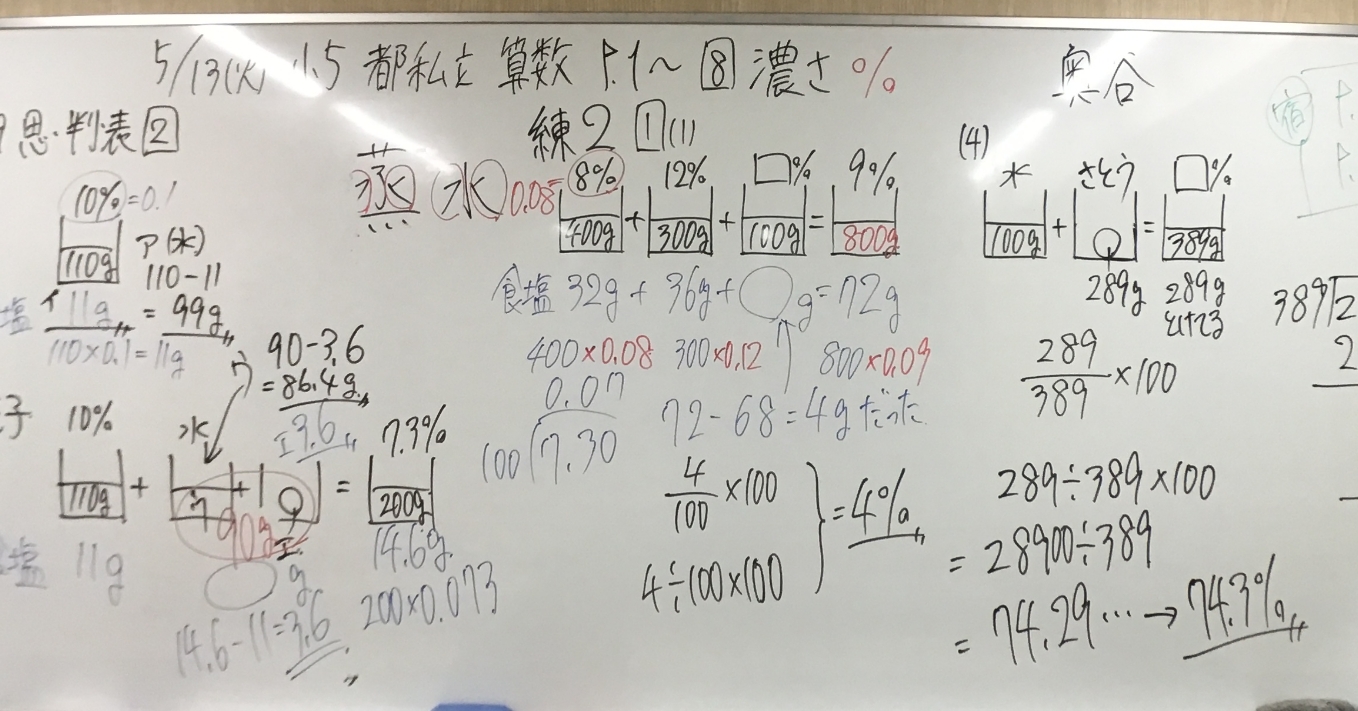 5/13(火) 小5 都私立 算数 P.1～8 濃さ %
奥谷
宿 P.
P.
思・判・表 2
10%=0.1
110g
ア(水)
110-11
= 99g
塩 イ 11g
110×0.1=11g
ウ 90-3.6
=86.4g
エ 3.6
子 10%
水
7.3%
110g + ウ + エ = 200g
90g
塩 11g
g
14.6g
14.6-11=3.6
200×0.073
蒸 水
練2 1(1)
0.08= 8% 12% □% 9%
400g + 300g + 100g = 800g
食塩 32g + 36g + ○g = 72g
400×0.08 300×0.12 800×0.09
0.07
100 7.30
72-68=4gだった
4/100 ×100
4÷100×100
=4%
(4)
水 さとう □%
100g + = 389g
289g 289g
とけてる
289/389 ×100
289÷389×100
= 28900÷389
= 74.29… → 74.3%
389 2
2